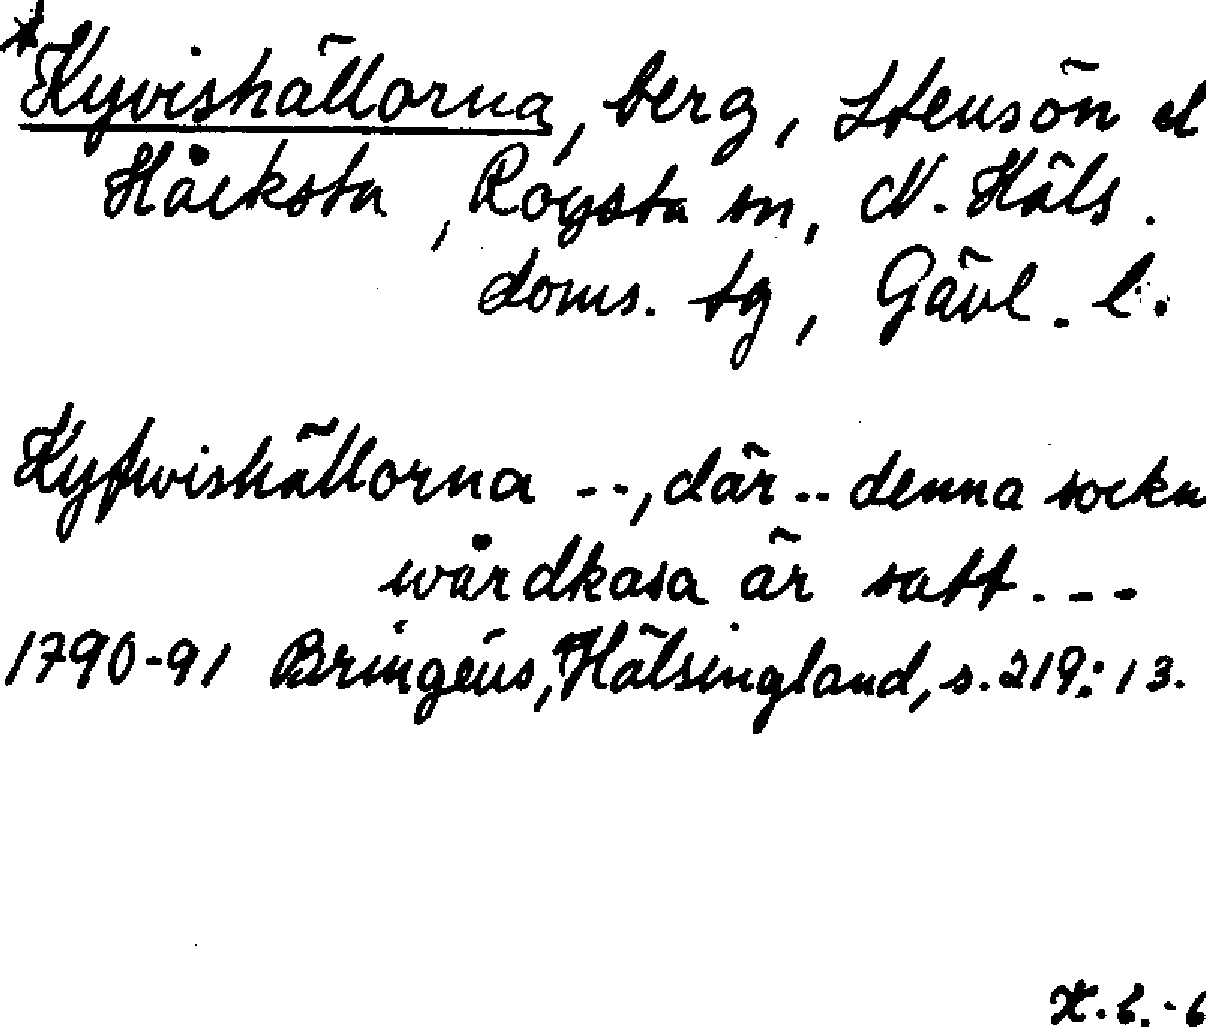 *Kyvishällorna, berg, Stensön el
Håcksta, Rogsta sn, N. Häls.
doms. tg, Gävl. l.
Kyfwishällorna --, där .. denna sockn
wårdkasa är satt. --
1790-91 Bringéus, Hälsingland, s. 219: 13.